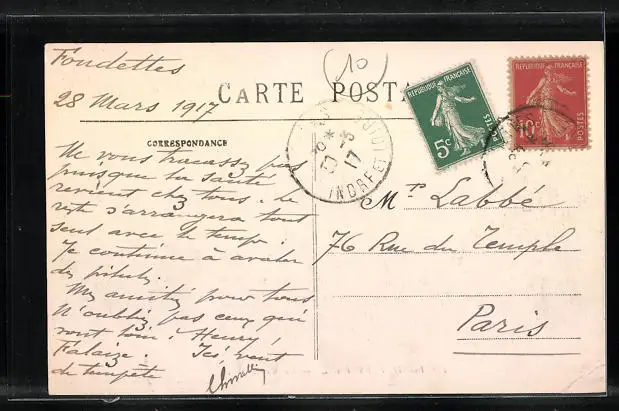 Fondettes
28 Mars 1917
CARTE POSTA
10
CORRESPONDANCE
Ne vous tracassez pas
puisque la santé
revient chez tous. Le
reste s'arrangera tout
seul avec le temps.
Je continue à avaler
des pilules.
Mes amitiés pour tous
N'oubliez pas ceux qui
sont loin. Henry,
Falaize. Ici, vent
de tempête
REPUBLIQUE FRANÇAISE
POSTES
5c
REPUBLIQUE FRANÇAISE
POSTES
10c
17
INDRE ET
Mr Labbé
76 Rue du Temple
Paris